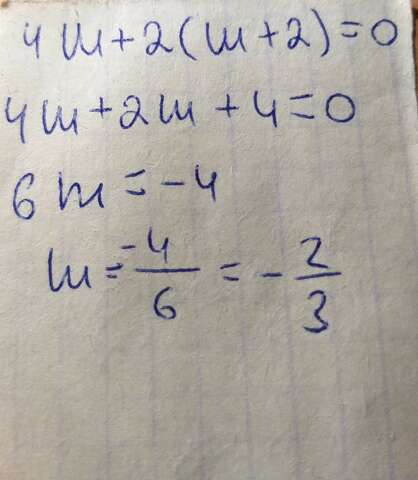 4m+2(m+2)=0
4m+2m+4=0
6m=-4
m=-4/6=-2/3